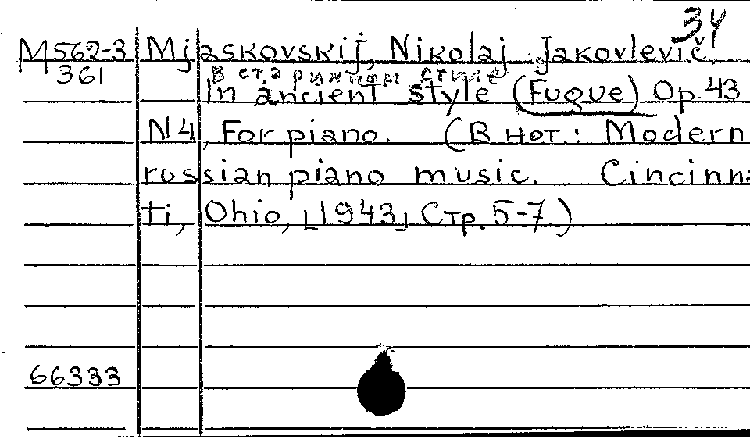 34
M562-3 Mjaskovskij, Nikolaj Jakovlevič.
361 В старинном стиле
In ancient style (Fugue) Op. 43
N4, For piano. (В нот.: Modern
russian piano music. Cincinna-
ti, Ohio, [1943] Стр. 5-7.)
66333